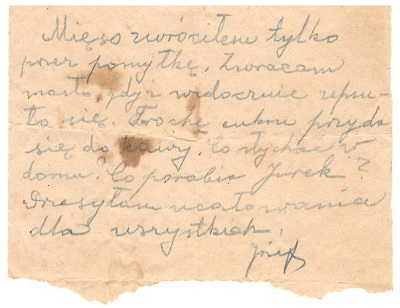 Mięso zwróciłem tylko
przez pomyłkę. Zwracam
masło gdyż widocznie zepsu-
ło się. Trochę cukru przyda
się do kawy. Co słychać w
domu? Co porabia Jurek?
Przesyłam ucałowania
dla wszystkich.
Józef